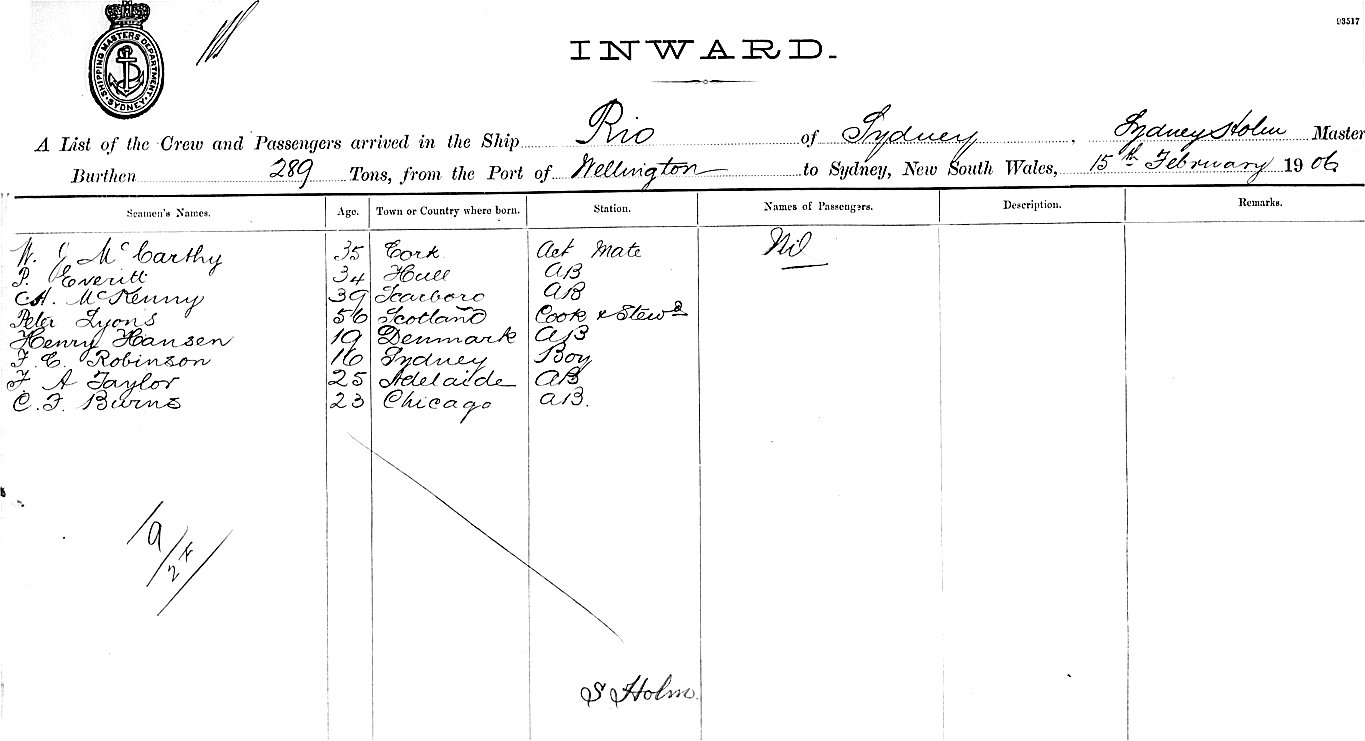 SHIPPING MASTERS DEPARTMENT
SYDNEY
93517
INWARD.
A List of the Crew and Passengers arrived in the Ship Rio of Sydney, Sydney Holm Master
Burthen 289 Tons, from the Port of Wellington to Sydney, New South Wales, 15th February 1906
Seamen's Names. Age. Town or Country where born. Station. Names of Passengers. Description. Remarks.
W. J McCarthy 35 Cork Act Mate Nil
P. Everitt 34 Hull AB
C.H. McKenny 39 Scarboro AB
Peter Lyons 56 Scotland Cook & Stewd
Henry Hansen 19 Denmark AB
F. E. Robinson 16 Sydney Boy
F A Taylor 25 Adelaide AB
C. F. Burns 23 Chicago AB.
S Holm.